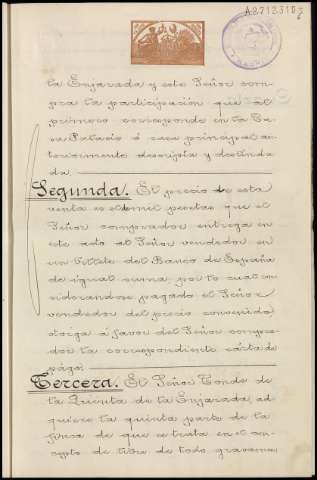 A8712310
la Enjarada y este Señor com-
pra la participación que al
primero corresponde en la Ca-
sa Palacio ó casa principal an-
teriormente descripta y deslinda-
da.
Segunda. El precio de esta
venta es el de mil pesetas que el
Señor comprador entrega en
este acto al Señor vendedor en
un billete del Banco de España
de igual suma, por lo cual con-
siderandose pagado el Señor
vendedor del precio convenido
otorga á favor del Señor compra-
dor la correspondiente carta de
pago.
Tercera. El Señor Conde de
la Quinta de la Enjarada ad-
quiere la quinta parte de la
finca de que se trata en el con-
cepto de libre de todo gravamen